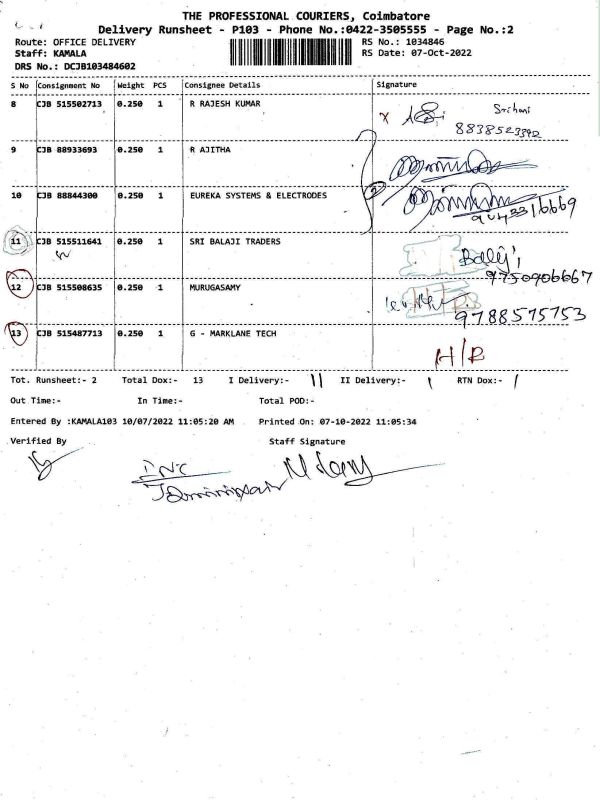 THE PROFESSIONAL COURIERS, Coimbatore
Delivery Runsheet - P103 - Phone No.:0422-3505555 - Page No.:2
Route: OFFICE DELIVERY RS No.: 1034846
Staff: KAMALA RS Date: 07-Oct-2022
DRS No.: DCJB103484602
S No Consignment No Weight PCS Consignee Details Signature
8 CJB 515502713 0.250 1 R RAJESH KUMAR
x Srihari
8838523392
9 CJB 88933693 0.250 1 R AJITHA
10 CJB 88844300 0.250 1 EUREKA SYSTEMS & ELECTRODES
11 CJB 515511641 0.250 1 SRI BALAJI TRADERS
Balaji
9750906667
12 CJB 515508635 0.250 1 MURUGASAMY
9788575753
13 CJB 515487713 0.250 1 G - MARKLANE TECH
H/B
Tot. Runsheet:- 2 Total Dox:- 13 I Delivery:- 11 II Delivery:- 1 RTN Dox:- 1
Out Time:- In Time:- Total POD:-
Entered By :KAMALA103 10/07/2022 11:05:20 AM Printed On: 07-10-2022 11:05:34
Verified By Staff Signature